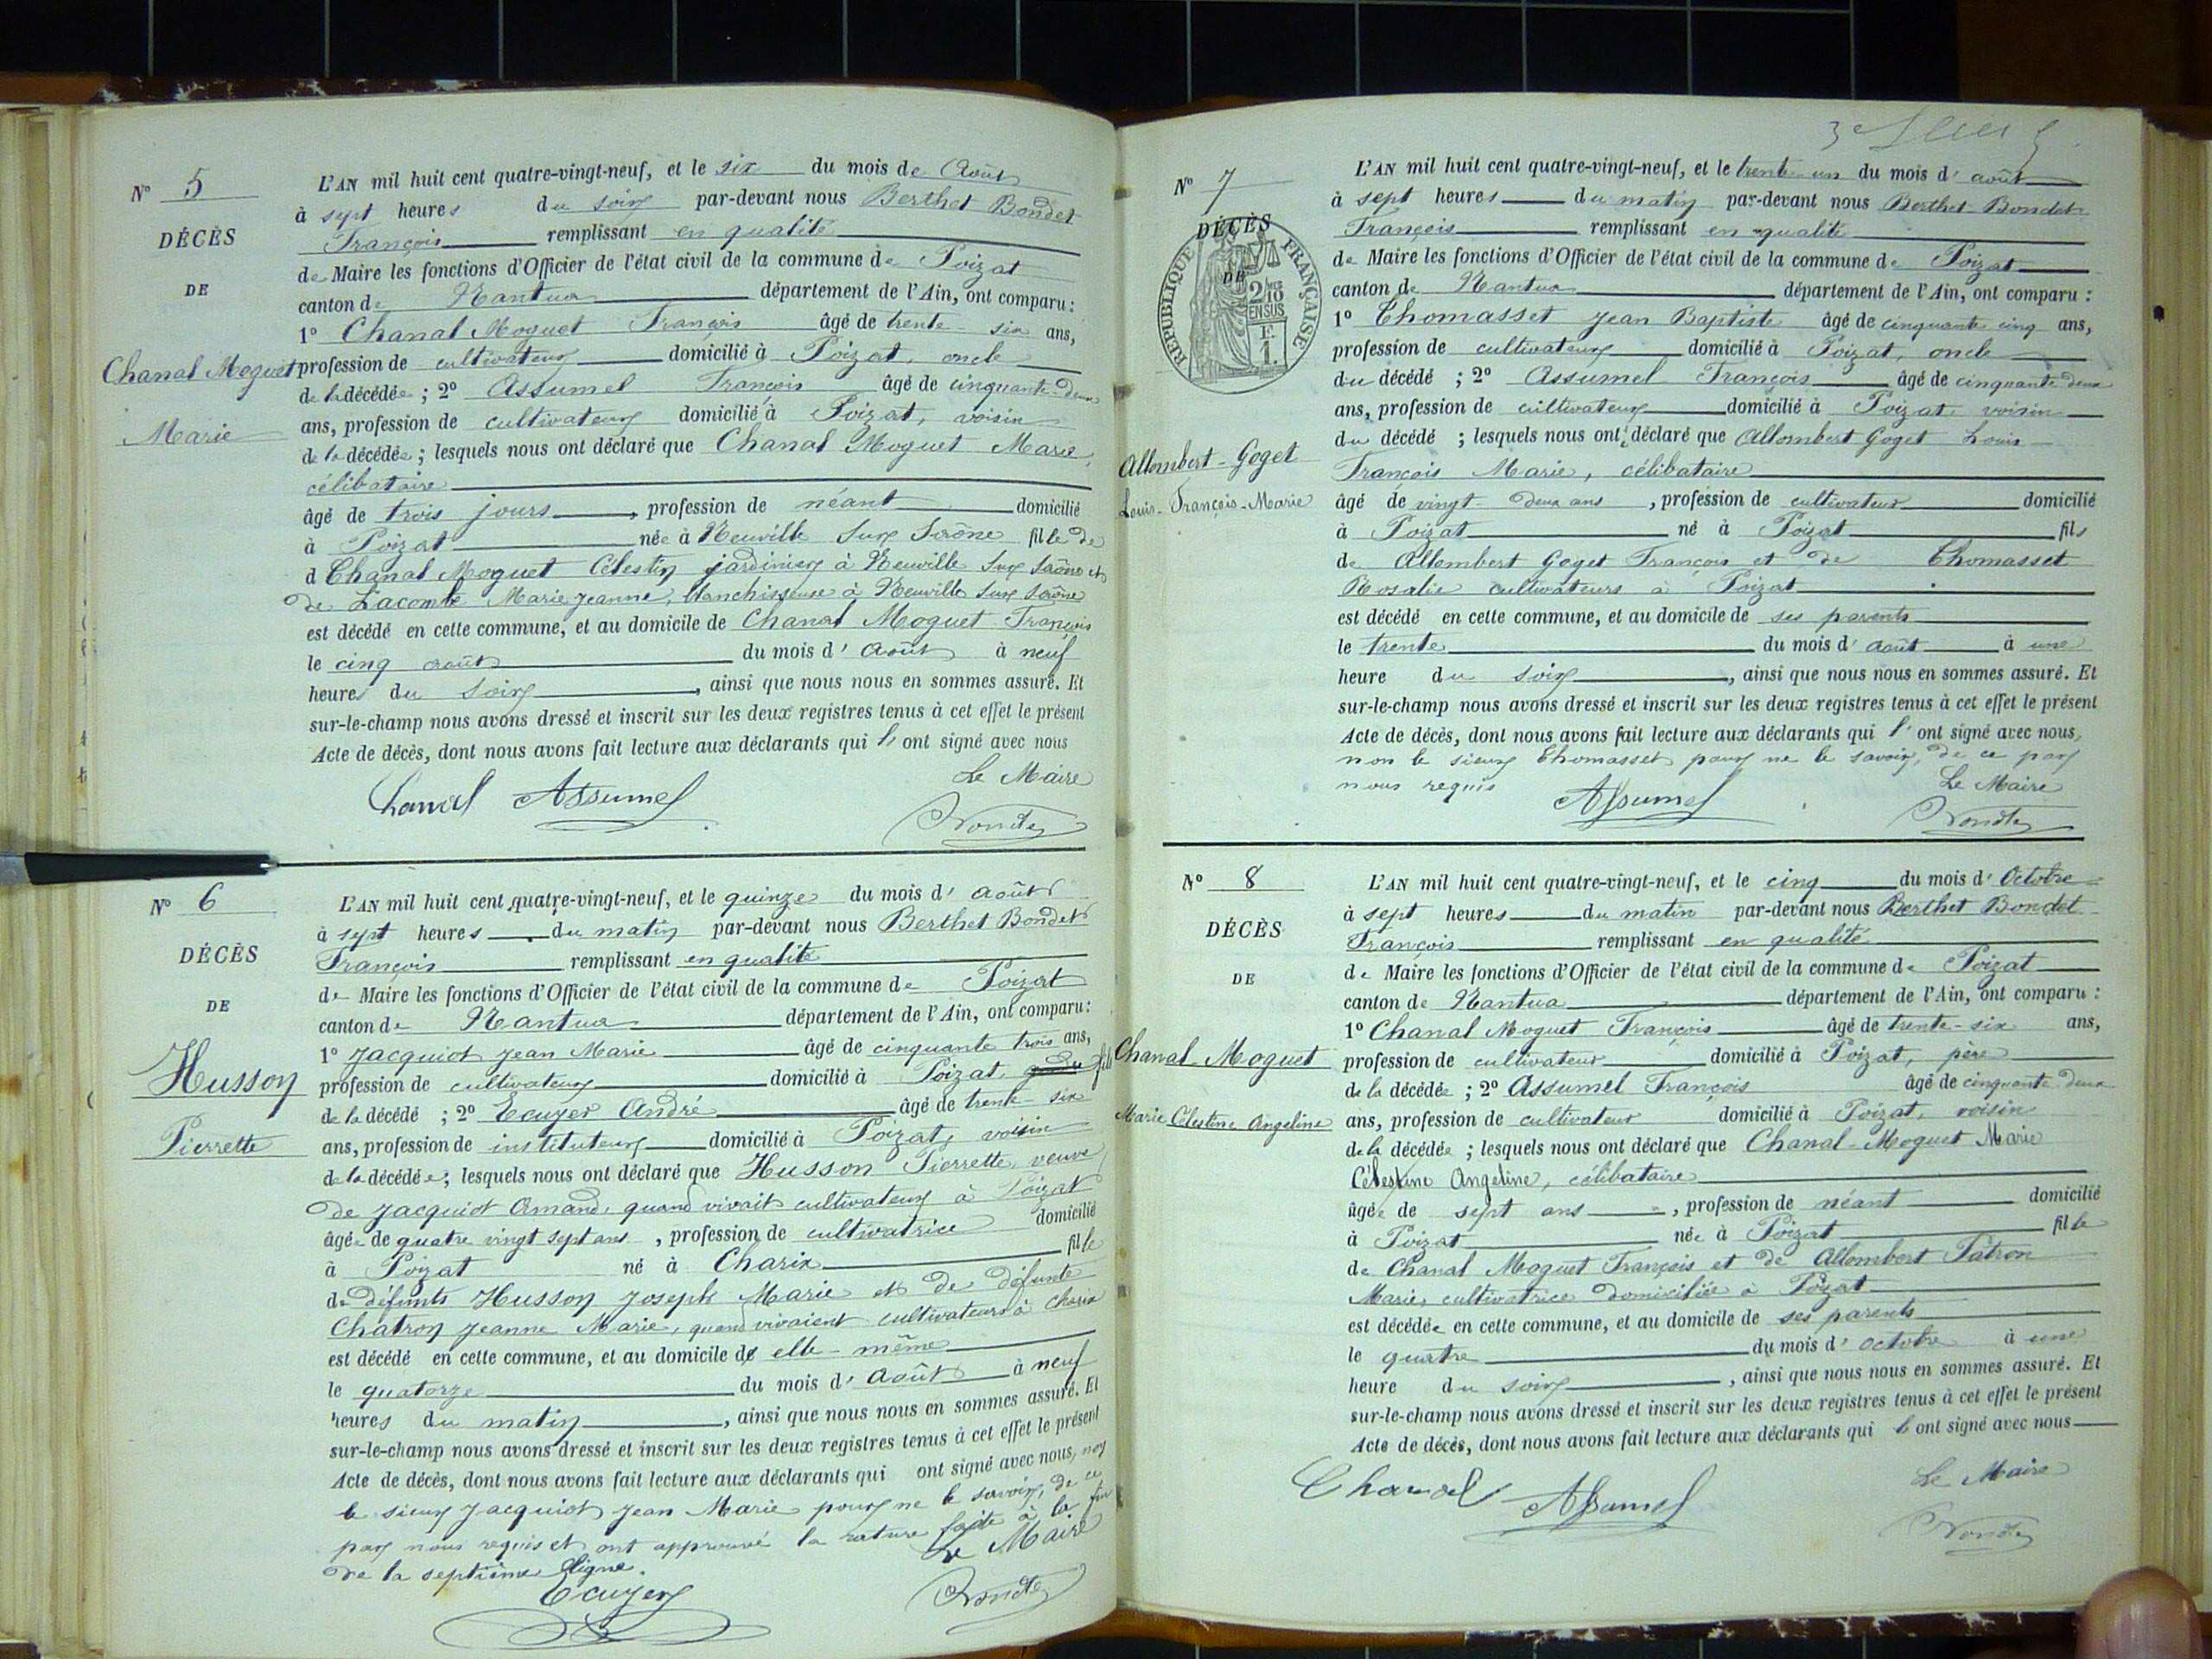 N° 5
DÉCÈS
DE
Chanal Moguet
Marie
L'AN mil huit cent quatre-vingt-neuf, et le six du mois de Août
à sept heures du soir par-devant nous Berthet Bondet
François remplissant en qualité
de Maire les fonctions d'Officier de l'état civil de la commune de Poizat
canton de Nantua département de l'Ain, ont comparu :
1° Chanal Moguet François âgé de trente-six ans,
profession de cultivateur domicilié à Poizat, oncle
de la décédée ; 2° Assumel François âgé de cinquante-deux
ans, profession de cultivateur domicilié à Poizat, voisin
de la décédée ; lesquels nous ont déclaré que Chanal Moguet Marie,
célibataire
âgé de trois jours, profession de néant domicilié
à Poizat née à Neuville sur Saône fille de
d Chanal Moguet Célestin jardinier à Neuville sur Saône et
de Lacombe Marie Jeanne, blanchisseuse à Neuville sur Saône
est décédé en cette commune, et au domicile de Chanal Moguet François
le cinq août du mois d' Août à neuf
heures du soir, ainsi que nous nous en sommes assuré. Et
sur-le-champ nous avons dressé et inscrit sur les deux registres tenus à cet effet le présent
Acte de décès, dont nous avons fait lecture aux déclarants qui l'ont signé avec nous
Le Maire
Chanal Assumel
Bondet
N° 6
DÉCÈS
DE
Husson
Pierrette
L'AN mil huit cent quatre-vingt-neuf, et le quinze du mois d' août
à sept heures du matin par-devant nous Berthet Bondet
François remplissant en qualité
de Maire les fonctions d'Officier de l'état civil de la commune de Poizat
canton de Nantua département de l'Ain, ont comparu :
1° Jacquiot Jean Marie âgé de cinquante trois ans,
profession de cultivateur domicilié à Poizat, fils
de la décédé ; 2° Ecuyer André âgé de trente-six
ans, profession de instituteur domicilié à Poizat, voisin
de la décédée ; lesquels nous ont déclaré que Husson Pierrette, veuve
de Jacquiot Amand, quand vivait cultivateur à Poizat
âgée de quatre vingt sept ans, profession de cultivatrice domicilié
à Poizat né à Charix fille
de défunts Husson Joseph Marie et de défunte
Chatron Jeanne Marie, quand vivaient cultivateurs à Charix
est décédé en cette commune, et au domicile de elle-même
le quatorze du mois d' Août à neuf
heures du matin, ainsi que nous nous en sommes assuré. Et
sur-le-champ nous avons dressé et inscrit sur les deux registres tenus à cet effet le présent
Acte de décès, dont nous avons fait lecture aux déclarants qui ont signé avec nous, non
le sieur Jacquiot Jean Marie pour ne le savoir, de ce
par nous requis et ont approuvé la rature faite à la fin
de la septième ligne. Le Maire
Ecuyer
Bondet
N° 7
DÉCÈS
DE
RÉPUBLIQUE FRANÇAISE
2/10
EN SUS
F.
1.
Allombert-Goget
Louis-François-Marie
L'AN mil huit cent quatre-vingt-neuf, et le trente-un du mois d' août
à sept heures du matin par-devant nous Berthet-Bondet
François remplissant en qualité
de Maire les fonctions d'Officier de l'état civil de la commune de Poizat
canton de Nantua département de l'Ain, ont comparu :
1° Thomasset Jean Baptiste âgé de cinquante cinq ans,
profession de cultivateur domicilié à Poizat, oncle
du décédé ; 2° Assumel François âgé de cinquante deux
ans, profession de cultivateur domicilié à Poizat voisin
du décédé ; lesquels nous ont déclaré que Allombert Goget Louis
François Marie, célibataire
âgé de vingt-deux ans, profession de cultivateur domicilié
à Poizat né à Poizat fils
de Allombert Goget François et de Thomasset
Rosalie cultivateurs à Poizat
est décédé en cette commune, et au domicile de ses parents
le trente du mois d' août à une
heure du soir, ainsi que nous nous en sommes assuré. Et
sur-le-champ nous avons dressé et inscrit sur les deux registres tenus à cet effet le présent
Acte de décès, dont nous avons fait lecture aux déclarants qui l'ont signé avec nous,
non le sieur Thomasset pour ne le savoir, de ce par
nous requis Le Maire
Assumel
Bondet
N° 8
DÉCÈS
DE
Chanal-Moguet
Marie Célestine Angeline
L'AN mil huit cent quatre-vingt-neuf, et le cinq du mois d' Octobre
à sept heures du matin par-devant nous Berthet Bondet
François remplissant en qualité
de Maire les fonctions d'Officier de l'état civil de la commune de Poizat
canton de Nantua département de l'Ain, ont comparu :
1° Chanal Moguet François âgé de trente-six ans,
profession de cultivateur domicilié à Poizat, père
de la décédée ; 2° Assumel François âgé de cinquante deux
ans, profession de cultivateur domicilié à Poizat, voisin
de la décédée ; lesquels nous ont déclaré que Chanal-Moguet Marie
Célestine Angeline, célibataire
âgée de sept ans, profession de néant domicilié
à Poizat née à Poizat fille
de Chanal Moguet François et de Allombert Patron
Marie, cultivatrice domiciliée à Poizat
est décédée en cette commune, et au domicile de ses parents
le quatre du mois d' octobre à une
heure du soir, ainsi que nous nous en sommes assuré. Et
sur-le-champ nous avons dressé et inscrit sur les deux registres tenus à cet effet le présent
Acte de décès, dont nous avons fait lecture aux déclarants qui l'ont signé avec nous
Le Maire
Chanal Assumel
Bondet